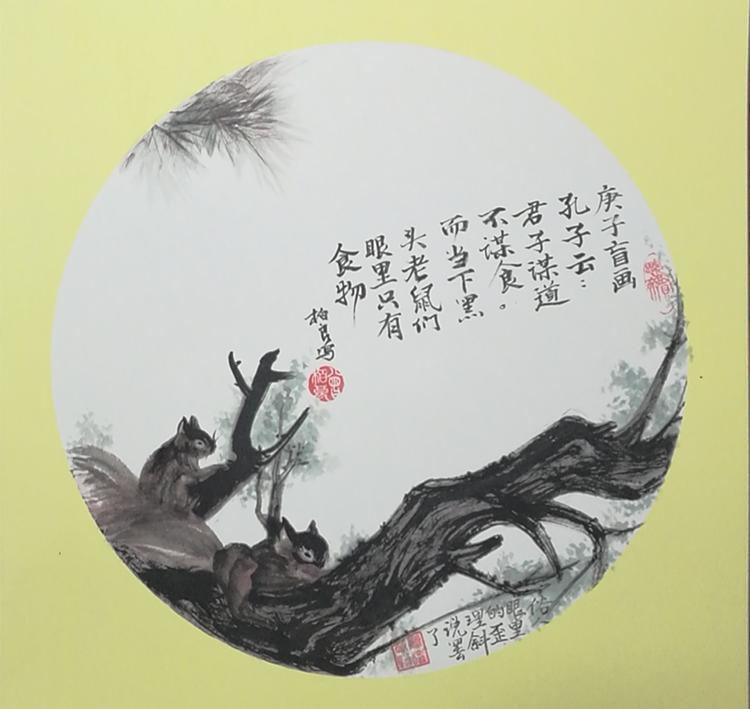 庚子盲画
孔子云：
君子谋道
不谋食。
而当下黑
头老鼠们
眼里只有
食物
柏良写
眼里
的歪
理斜
说罢
了